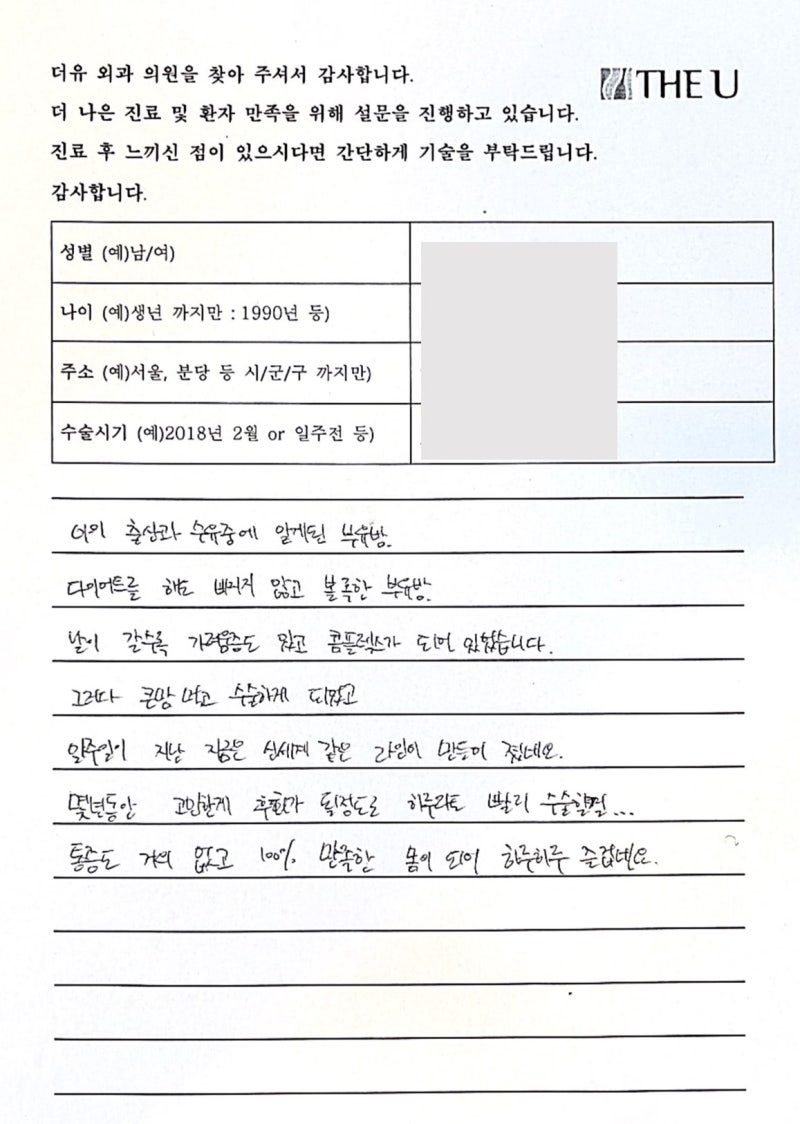 더유 외과 의원을 찾아 주셔서 감사합니다.
THE U
더 나은 진료 및 환자 만족을 위해 설문을 진행하고 있습니다.
진료 후 느끼신 점이 있으시다면 간단하게 기술을 부탁드립니다.
감사합니다.
성별 (예)남/여)
나이 (예)생년 까지만 : 1990년 등)
주소 (예)서울, 분당 등 시/군/구 까지만)
수술시기 (예)2018년 2월 or 일주전 등)
출산과 수유중에 알게된 부유방.
다이어트를 해도 빠지지 않고 볼록한 부유방.
날이 갈수록 가려움증도 있고 콤플렉스가 되어 있었습니다.
그러다 큰맘 먹고 수술하게 되었고
일주일이 지난 지금은 신세계 같은 라인이 만들어 졌네요.
몇년동안 고민한게 후회가 될정도로 하루라도 빨리 수술할껄...
통증도 거의 없고 100% 만족한 몸이 되어 하루하루 즐겁네요.